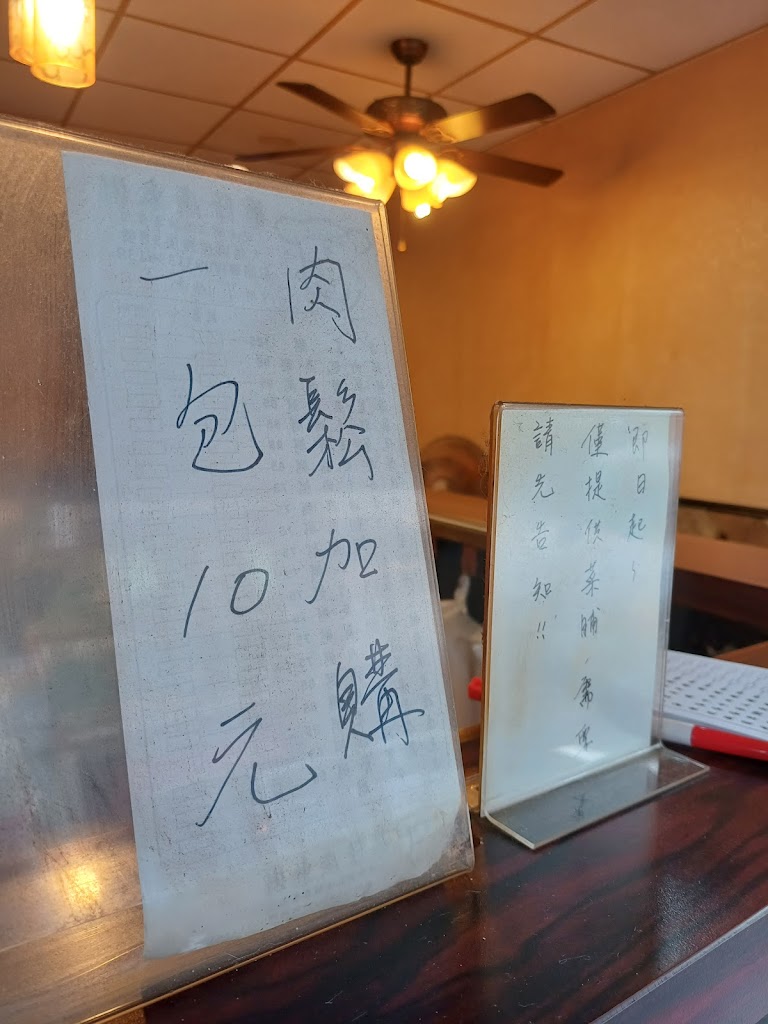 肉鬆加購
一包10元
即日起，
僅提供菜脯、需
請先告知!!